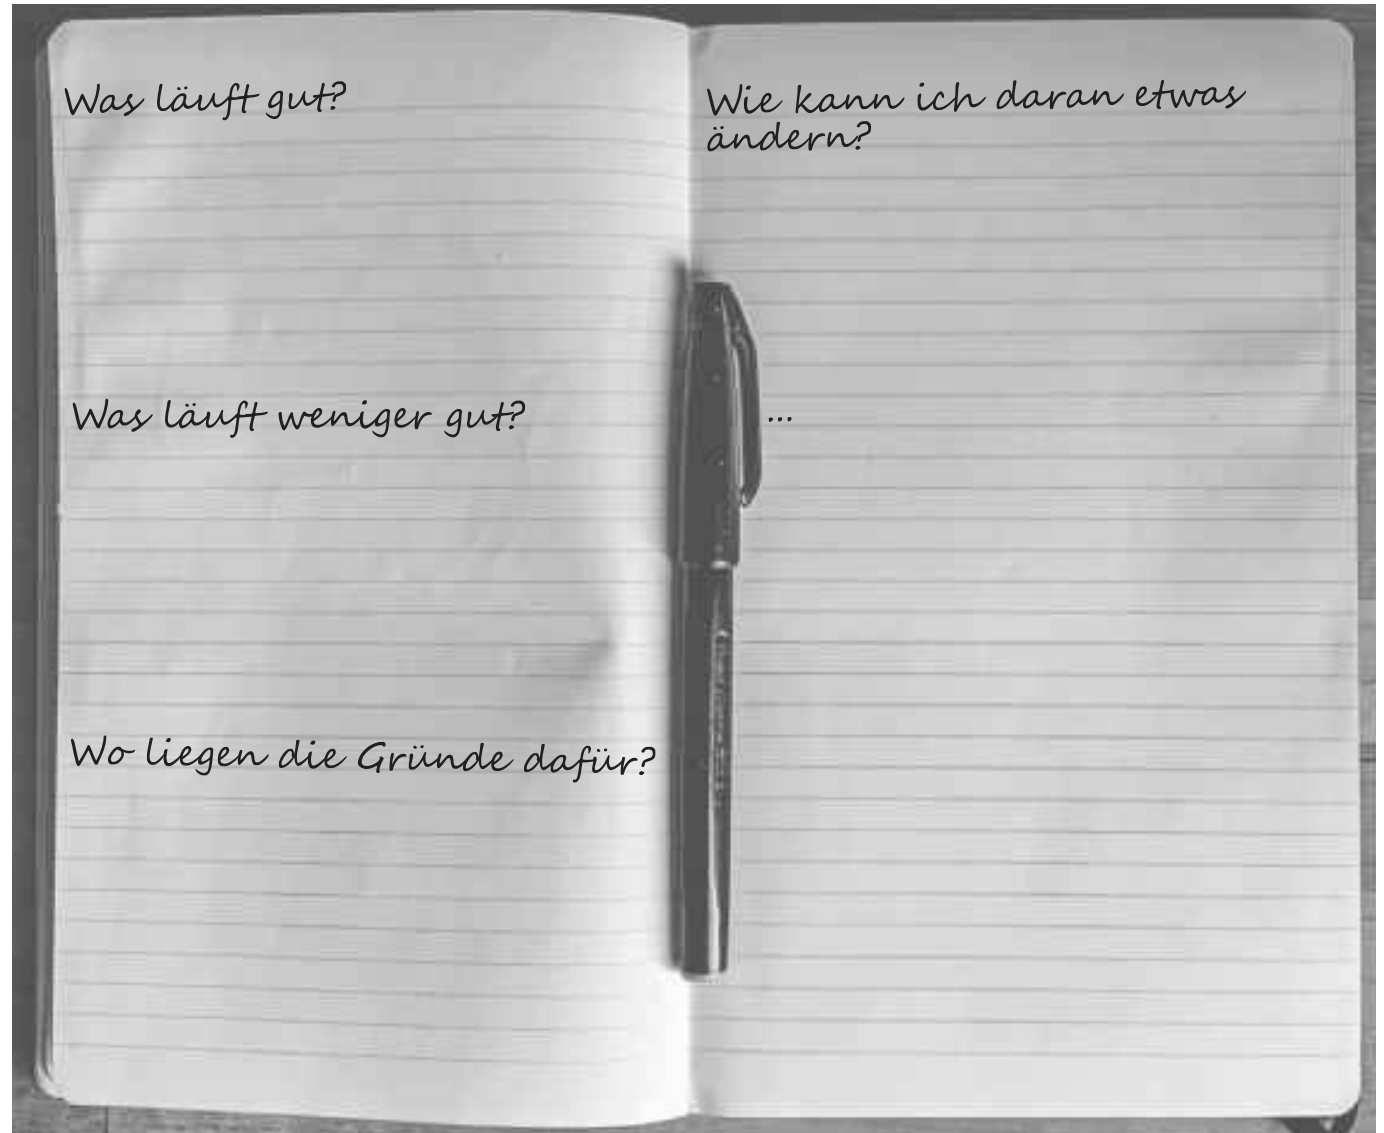 Was läuft gut?
Was läuft weniger gut?
Wo liegen die Gründe dafür?
Wie kann ich daran etwas
ändern?
...